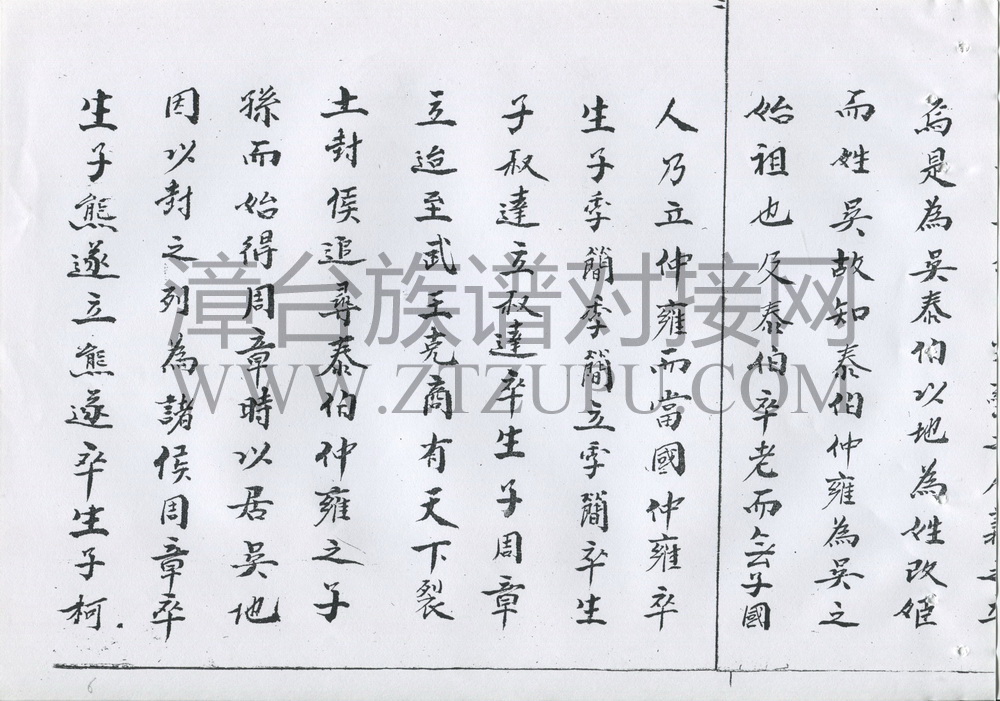 為是為吳泰伯以地為姓改姬
而姓吳故知泰伯仲雍為吳之
始祖也及泰伯卒老而無子國
人乃立仲雍而當國仲雍卒
生子季簡季簡立季簡卒生
子叔達立叔達卒生子周章
立迨至武王克商有天下裂
土封侯追尋泰伯仲雍之子
孫而始得周章時以居吳地
因以封之列為諸侯周章卒
生子熊遂立熊遂卒生子柯.
漳台族谱对接网
WWW.ZTZUPU.COM
6